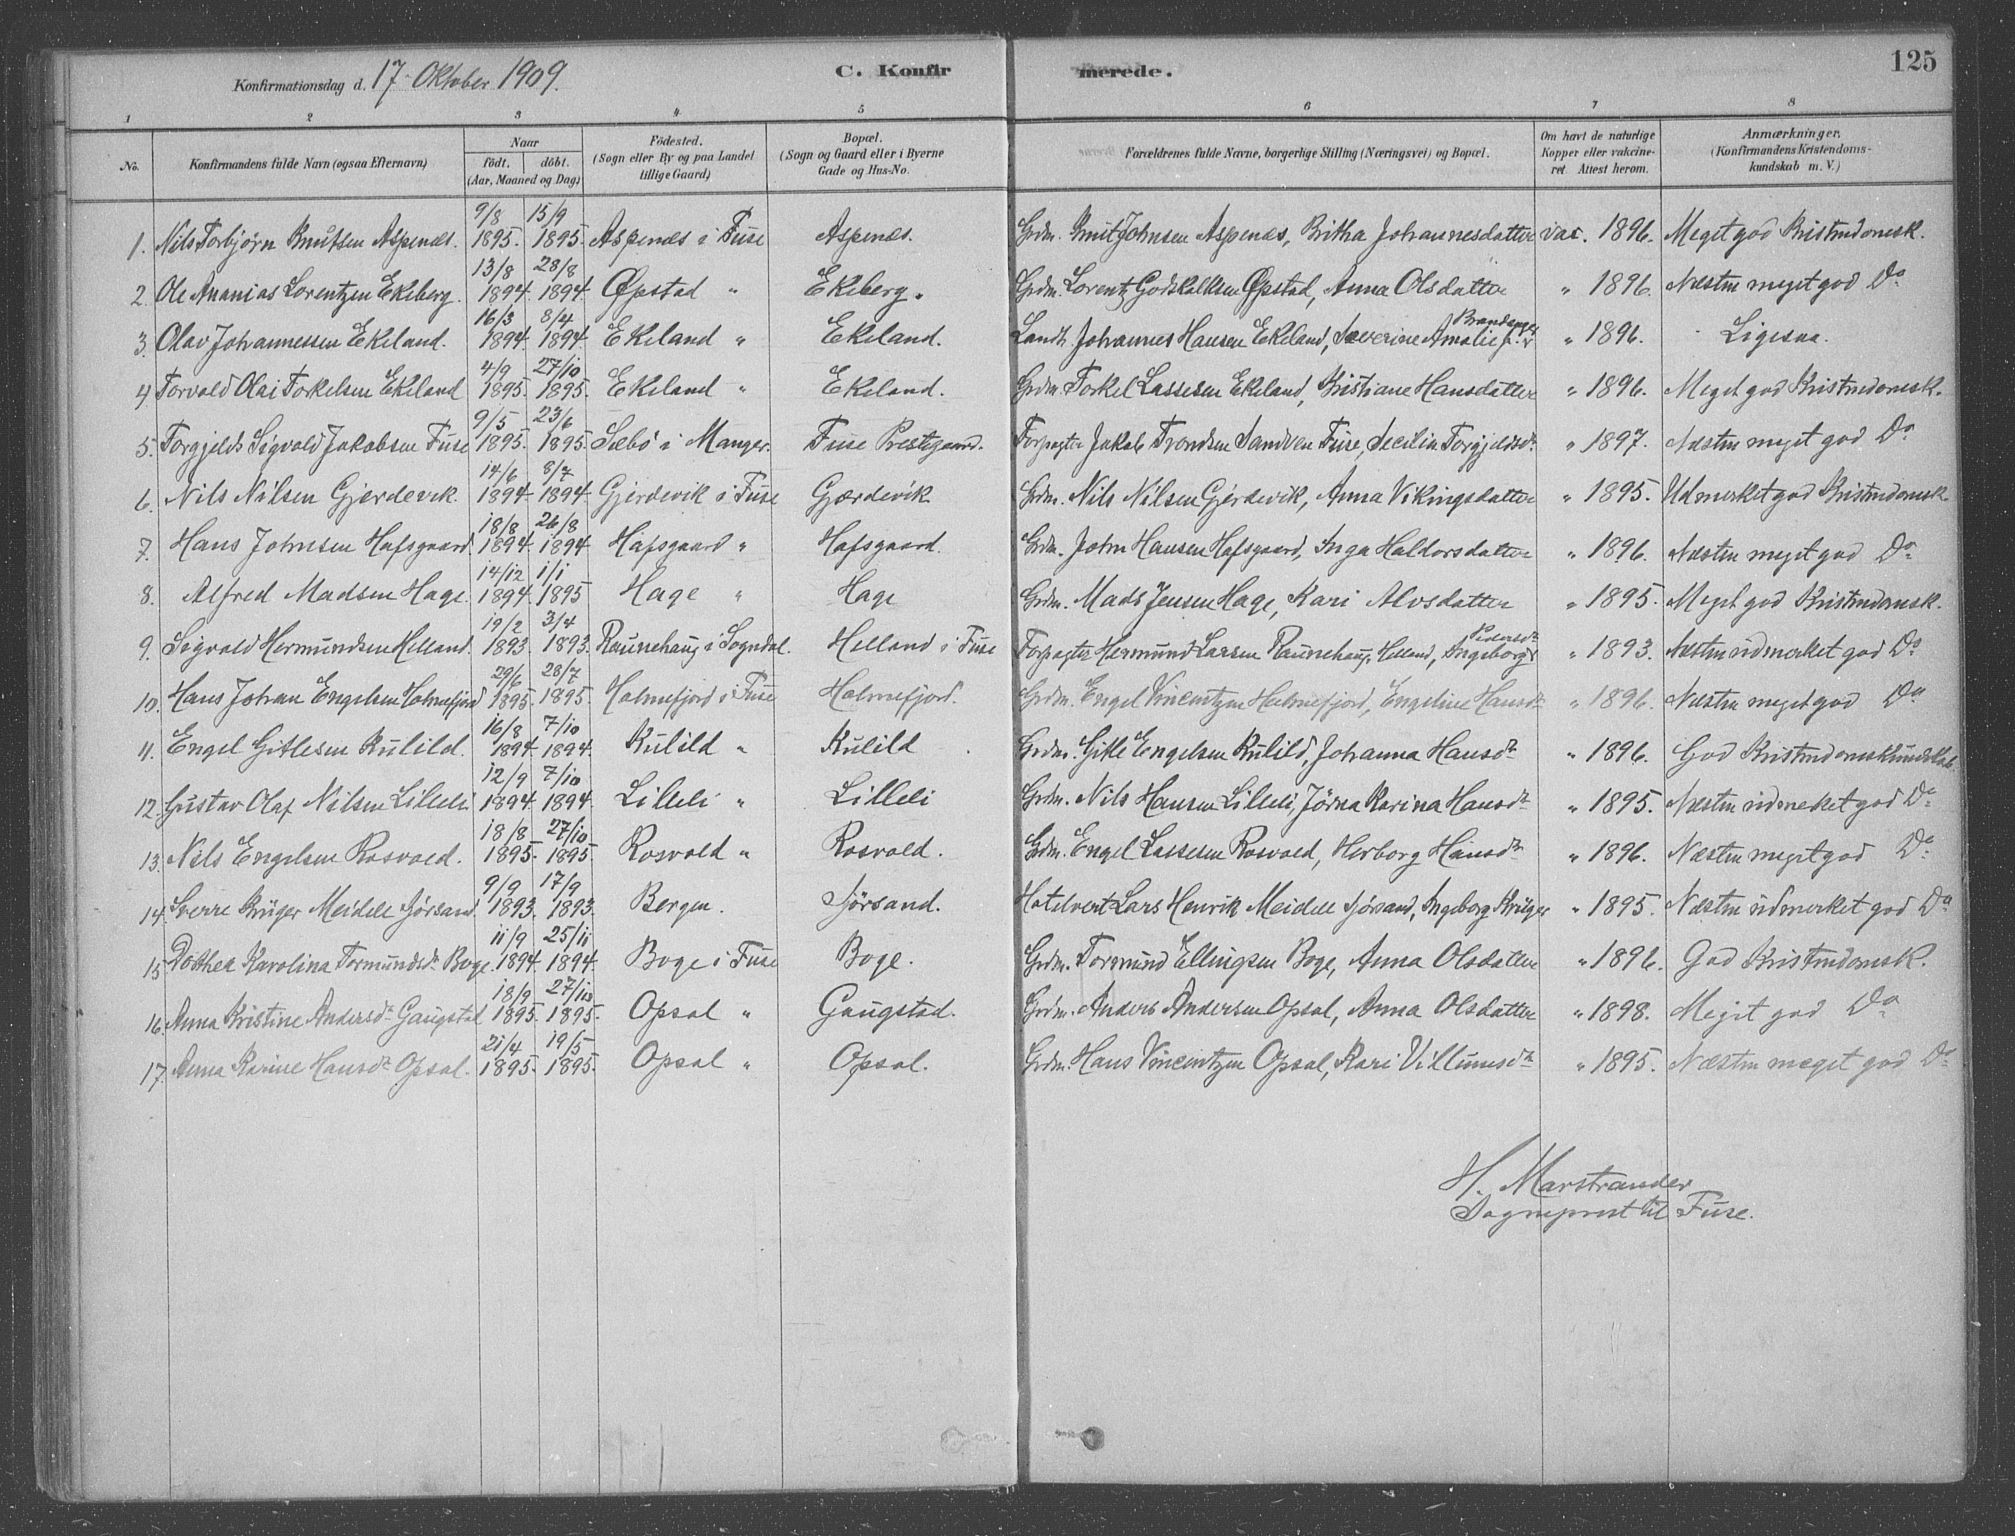 Konfirmationsdag d. 17 Oktober 1909. C. Konfirmerede. 125
1 2 3 4 5 6 7 8
No. Konfirmandens fulde Navn (ogsaa Efternavn) Naar født. døbt. (Aar, Maaned og Dag) Fødested. (Sogn eller By og paa Landet tillige Gaard) Bopæl. (Sogn og Gaard eller i Byerne Gade og Hus-No. Forældrenes fulde Navne, borgerlige Stilling (Næringsvei) og Bopæl. Om havt de naturlige Kopper eller vaccineret. Attest herom. Anmærkninger. (Konfirmandens Kristendomskundskab m. V.)
1. Nils Torbjørn Knutsen Aspenæs. 9/8 1895. 15/9 1895. Aspenæs i Fuse Aspenæs. Grdm. Knut Johnsen Aspenæs, Britha Johannesdatter vac. 1896. Meget god Kristendomsk.
2. Ole Ananias Lorentzen Ekeberg. 13/8 1894. 28/8 1894. Øpstad " Ekeberg. Grdm. Lorentz Godskalksen Øpstad, Anna Olsdatter " 1896. Næsten meget god Do
3. Olav Johannessen Ekeland. 16/3 1894. 8/4 1894. Ekeland " Ekeland. Landh. Johannes Hansen Ekeland, Severine Amalie f. Brandanger " 1896. Ligesaa.
4 Torvald Olai Torkelsen Ekeland 4/9 1895. 27/10 1895. Ekeland " Ekeland. Grdm. Torkel Lassesen Ekeland, Kristiane Hansdatter " 1896. Meget god Kristendomsk.
5. Torgjels Sigvald Jakobsen Fuse 9/5 1895. 23/6 1895. Sæbø i Manger. Fuse Prestgaard. Forpagter Jakob Trondsen Sandven Fuse, Secilia Torgjelsdtr. " 1897. Næsten meget god Do
6. Nils Nilsen Gjerdevik 14/6 1894. 8/7 1894. Gjerdevik i Fuse Gjærdevik Grdm. Nils Nilsen Gjerdevik, Anna Vikingsdatter " 1895. Udmerket god Kristendomsk.
7. Hans Johnsen Hafsgaard. 18/8 1894. 26/8 1894 Hafsgaard " Hafsgaard. Grdm. John Hansen Hafsgaard, Inga Haldorsdatter " 1896. Næsten meget god Do
8. Alfred Madsen Hage. 14/12 1894. 1/1 1895 Hage " Hage Grdm. Mads Jensen Hage, Kari Alvsdatter " 1895. Meget god Kristendomsk.
9. Sigvald Hermundsen Helland. 19/2 1893. 3/4 1893. Raunehaug i Sogndal. Helland i Fuse Forpagter Hermund Larsen Raunehaug, Helland, Ingeborg Pedersdtr " 1893. Næsten udmerket god Do
10. Hans Johan Engelsen Holmefjord 29/6 1895. 28/7 1895. Holmefjord i Fuse Holmefjord. Grdm. Engel Vincentzen Holmefjord, Engeline Hansdtr " 1896. Næsten meget god Do
11. Engel Gitlesen Kulild. 16/8 1894. 7/10 1894. Kulild " Kulild Grdm. Gitle Engelsen Kulild, Johanna Hansdtr " 1896. God Kristendomskundskab
12. Gustav Olaf Nilsen Lilleli 12/9 1894. 7/10 1894. Lilleli " Lilleli Grdm. Nils Hansen Lilleli, Jørna Karina Hansdtr " 1895. Næsten udmerket god Do
13. Nils Engelsen Rosvold. 18/8 1895. 27/10 1895. Rosvold " Rosvold. Grdm. Engel Lassesen Rosvold, Herborg Hansdtr " 1896. Næsten meget god Do
14. Sverre Krüger Meidell Sjørsand. 9/9 1893. 17/9 1893. Bergen. Sjørsand. Hotelvert Lars Henrik Meidell Sjørsand, Ingeborg Krüger " 1895. Næsten udmerket god Do
15 Dorthea Karolina Tormundsdtr Boge 11/9 1894. 25/11 1894. Boge i Fuse Boge. Grdm. Tormund Ellingsen Boge, Anna Olsdatter " 1896. God Kristendomsk.
16. Anna Kristine Andersdtr Gaugstad 18/9 1895. 27/10 1895. Opsal " Gaugstad. Grdm. Anders Andersen Opsal, Anna Olsdatter " 1898. Meget god Do
17. Anna Karine Hansdtr Opsal. 21/4 1895. 19/5 1895. Opsal " Opsal. Grdm. Hans Vincentzen Opsal, Kari Villumsdtr " 1895. Næsten meget god Do
H. Marstrander
Sogneprest til Fuse.